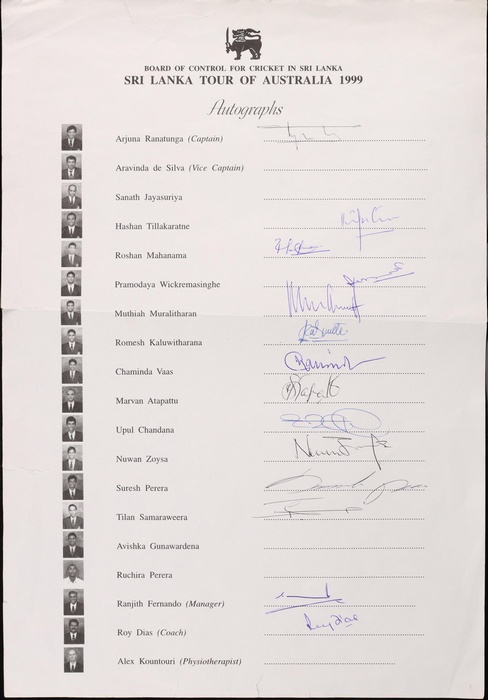 BOARD OF CONTROL FOR CRICKET IN SRI LANKA
SRI LANKA TOUR OF AUSTRALIA 1999
Autographs
Arjuna Ranatunga (Captain)
Aravinda de Silva (Vice Captain)
Sanath Jayasuriya
Hashan Tillakaratne
Roshan Mahanama
Pramodaya Wickremasinghe
Muthiah Muralitharan
Romesh Kaluwitharana
Chaminda Vaas
Marvan Atapattu
Upul Chandana
Nuwan Zoysa
Suresh Perera
Tilan Samaraweera
Avishka Gunawardena
Ruchira Perera
Ranjith Fernando (Manager)
Roy Dias (Coach) Roy Dias
Alex Kountouri (Physiotherapist)